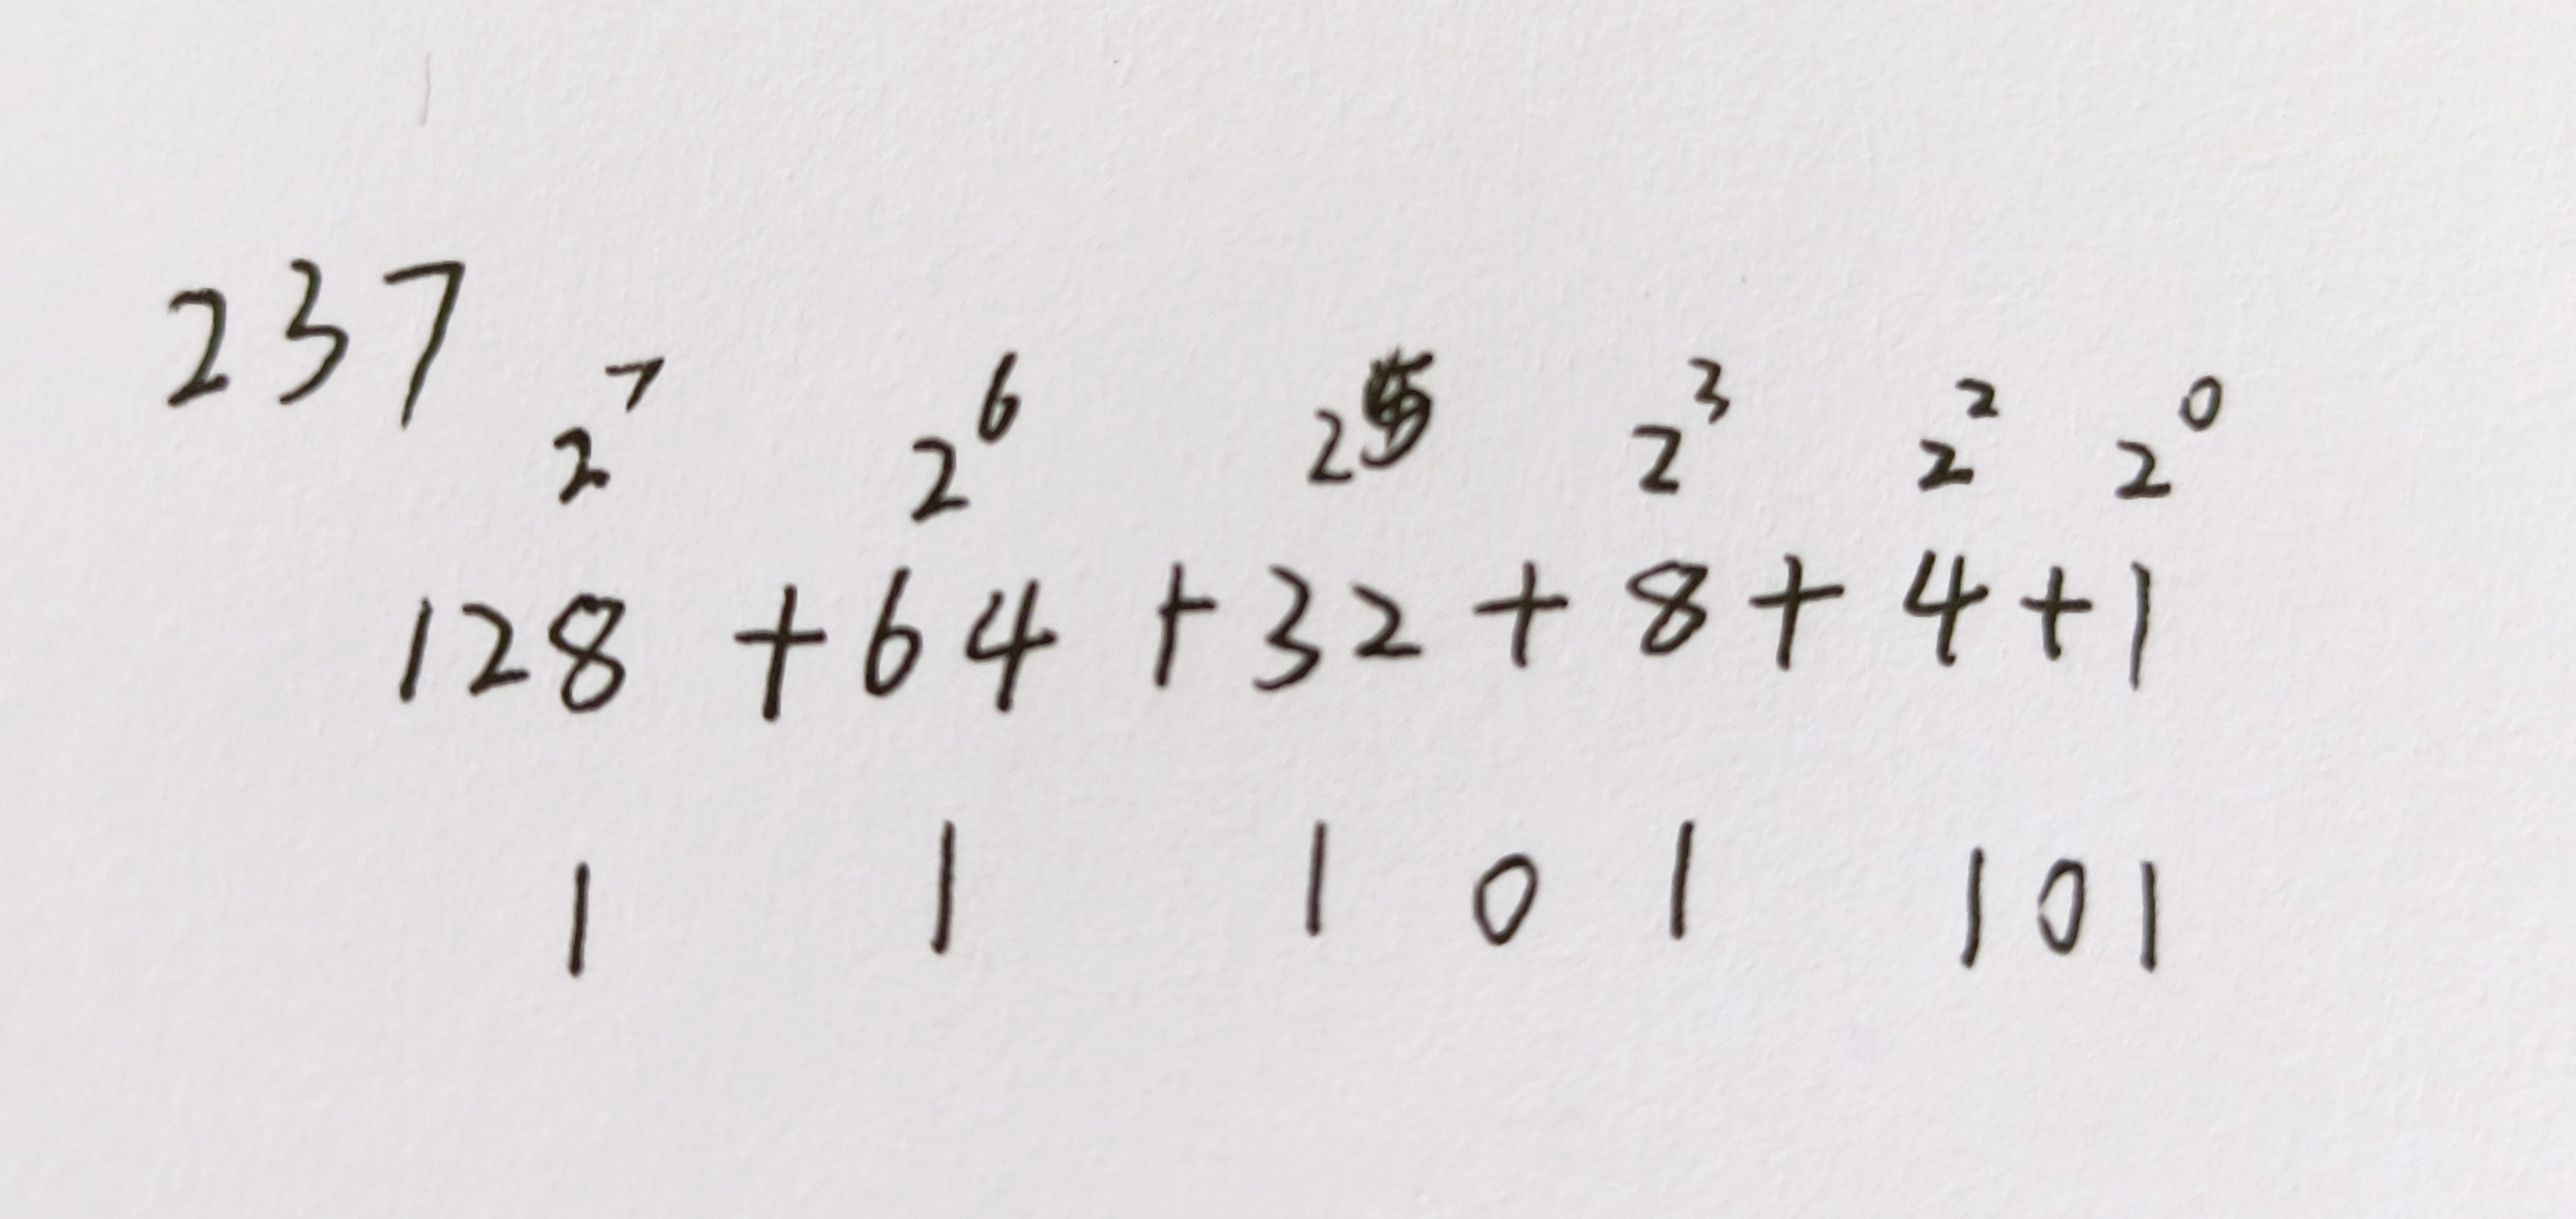 237
2⁷ 2⁶ 2⁵ 2³ 2² 2⁰
128 + 64 + 32 + 8 + 4 + 1
1 1 1 0 1 1 0 1